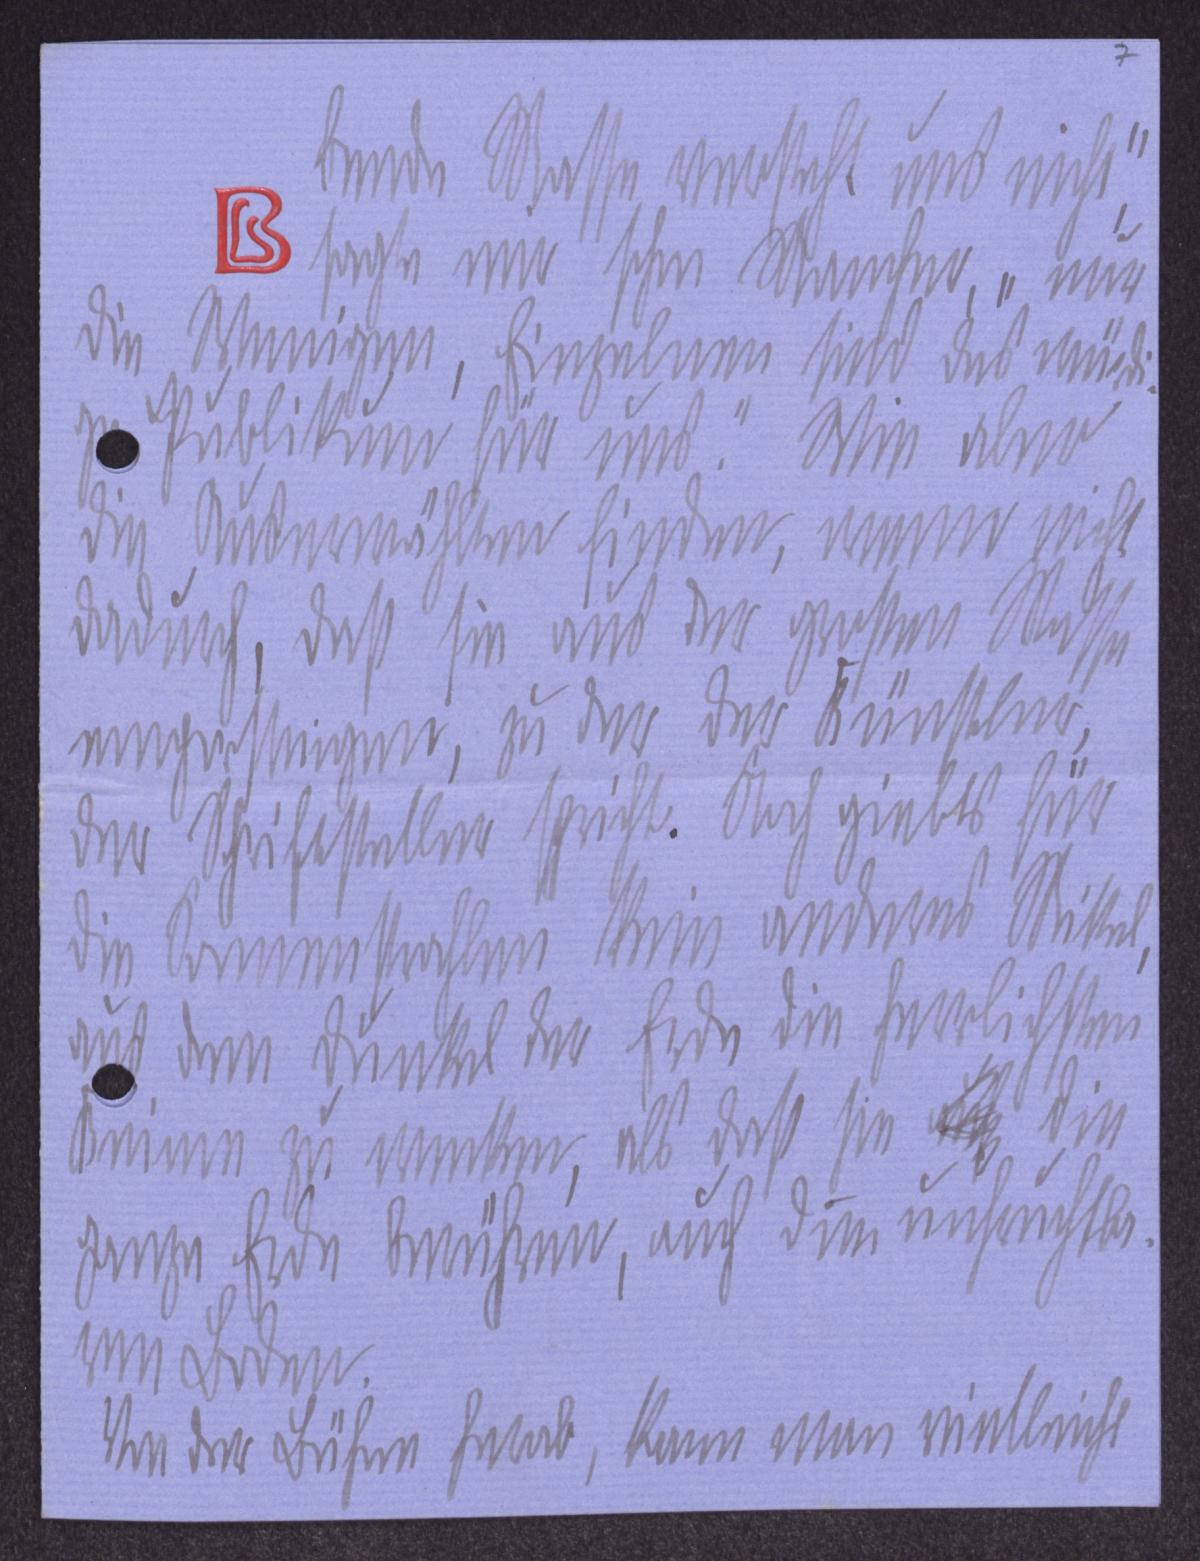 7
kende Masse versteht uns nicht"
B
sagte mir schon Mancher, " nur
die Wenigen, Einzelnen sind das würdi-
ge Publikum für uns." Wie aber
die Auserwählten finden, wenn nicht
dadurch, daß sie aus der großen Masse
emporsteigen, zu der der Künstler,
der Schriftsteller spricht. Noch giebts für
die Sonnenstrahlen kein anderes Mittel,
aus dem Dunkel der Erde die herrlichsten
Keime zu wecken, als daß sie die
ganze Erde berühren, auch den unfruchtba-
ren Boden.
Von der Bühne herab, kann man vielleicht